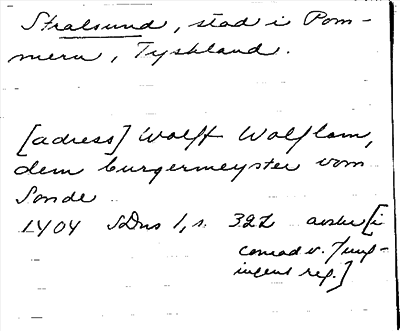 Stralsund, stad i Pom-
mern, Tyskland.
[adress] Wolff Wolflam,
dem burgermeyster vom
Sonde
1404 SDns 1, s. 327 avskr [i
conrad v. Jung-
ingens reg.]